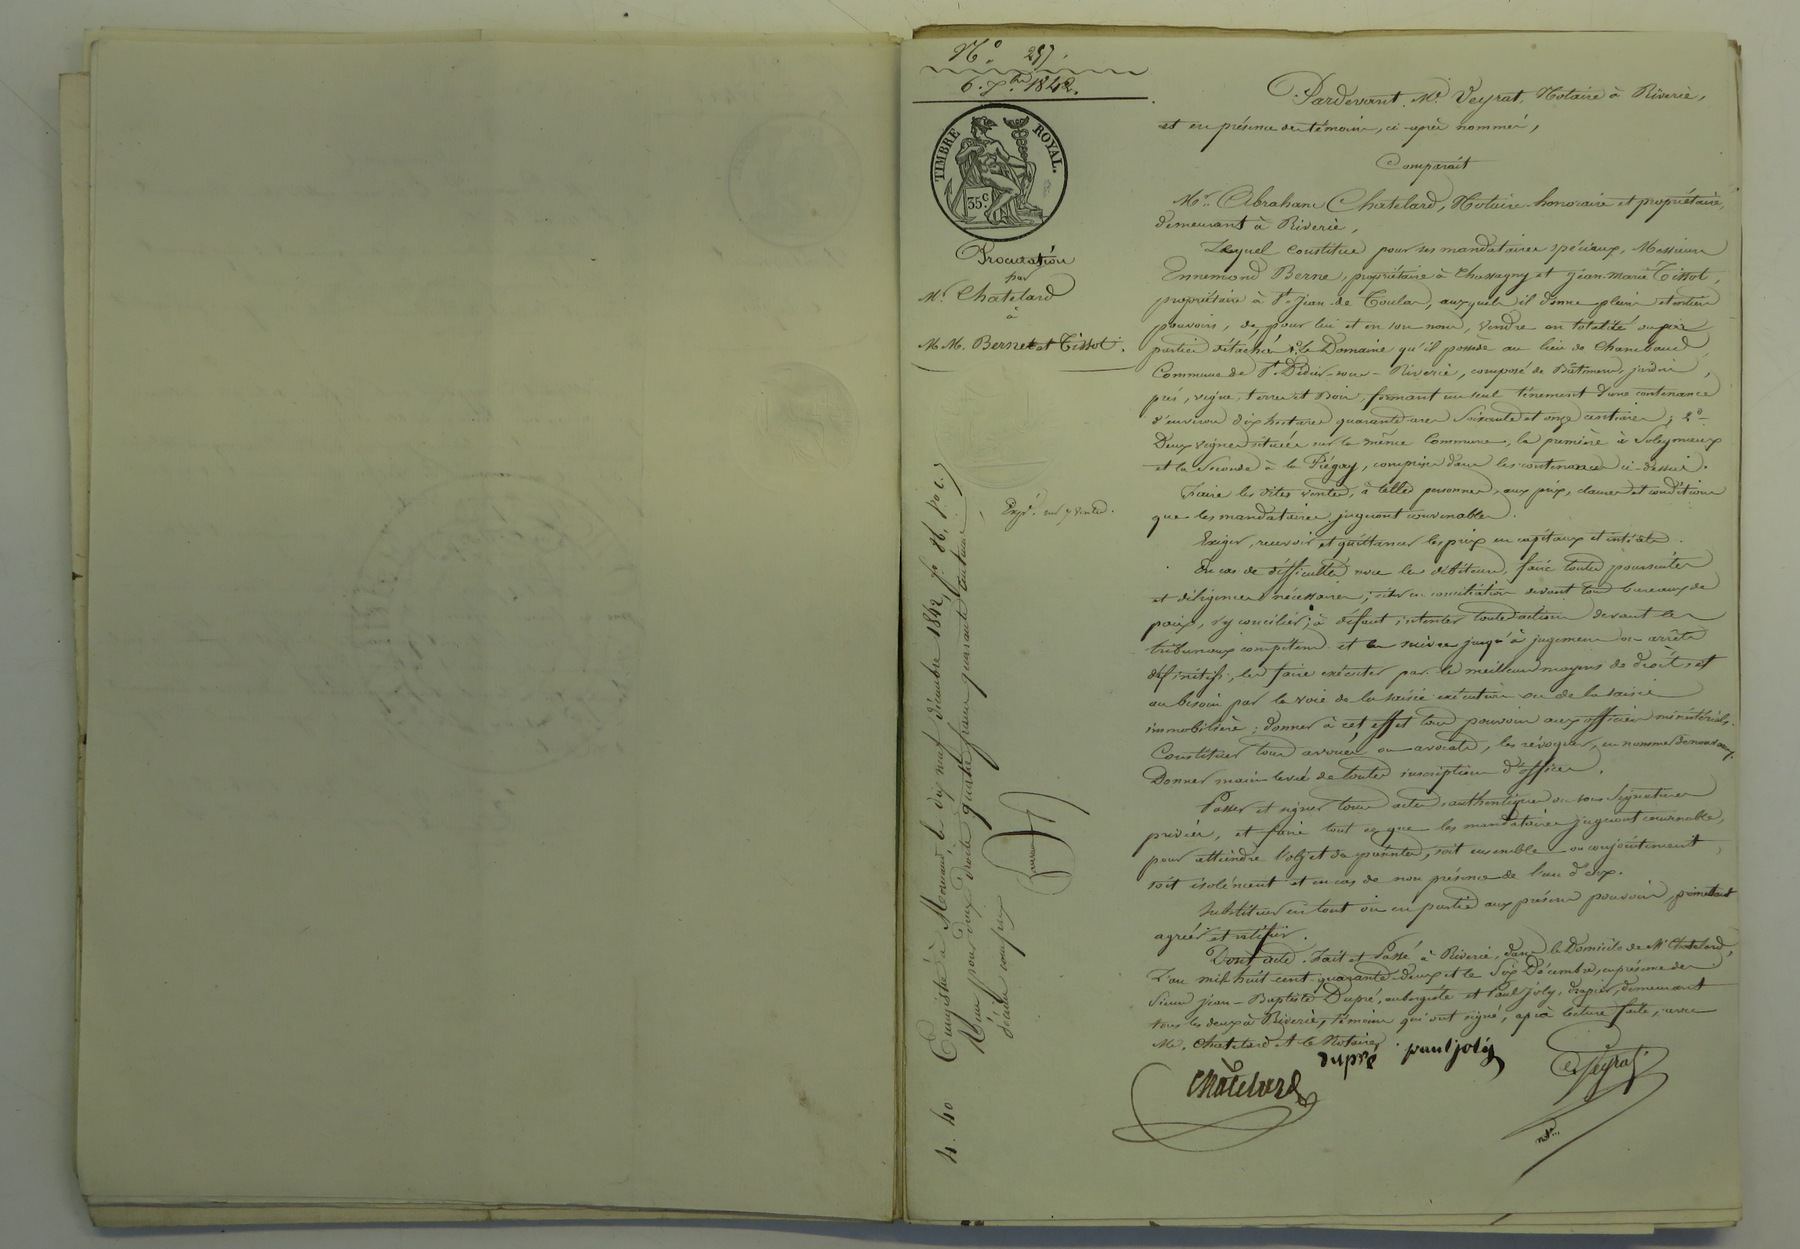 N.° 257.
6. Xbre 1842.
TIMBRE ROYAL.
35.c
Procuration
par
Mr. Chatelard
à
M.M. Berne et Tissot.
Expé. en 7 rôles.
Enregistré à Mornant, le dix neuf décembre 1842, f° 86, v° c.
Reçu pour deux droits quatre francs quarante centimes
décime compris
4. 40
Pardevant Me. Veyrat, Notaire à Riverie,
et en présence des témoins, ci-après nommés,
Comparaît
Mr. Abraham Chatelard, Notaire honoraire et propriétaire,
demeurant à Riverie,
Lequel constitue pour ses mandataires spéciaux, Messieurs
Ennemond Berne, propriétaire à Chassagny et Jean-Marie Tissot,
propriétaire à St. Jean-de Toulas, auxquels il donne plein et entier
pouvoir, de, pour lui et en son nom, vendre en totalité ou par
parties détachées 1° le Domaine qu'il possède au lieu de Chambaud
Commune de St. Didier-sous-Riverie, composé de Bâtiments, jardin,
prés, vigne, terres et Bois, formant un seul tènement d'une contenance
d'environ dix hectares quarante ares soixante et onze centiares; 2°
Deux vignes situées sur la même Commune, la première à Soleymieux
et la seconde à la Piégay, comprises dans les contenances ci-dessus.
Faire les dites ventes, à telles personnes, aux prix, clauses et conditions
que les mandataires jugeront convenables.
Exiger, recevoir et quittancer les prix en capitaux et intérêts.
En cas de difficultés avec les débiteurs, faire toutes poursuites
et diligences nécessaires; citer en conciliation devant tous bureaux de
paix, s'y concilier; à défaut intenter toutes actions devant les
tribunaux compétens et les suivre jusqu'à jugemens ou arrêts
définitifs, les faire exécuter par les meilleurs moyens de droit, et
au besoin par la voie de la saisie exécution ou de la saisie
immobilière; donner à cet effet tous pouvoirs aux officiers ministériels.
Constituer tous avoués ou avocats, les révoquer, en nommer de nouveaux.
Donner main levée de toutes inscriptions d'office.
Passer et signer tous actes authentiques ou sous signatures
privées, et faire tout ce que les mandataires jugeront convenable,
pour atteindre l'objet des présentes, soit ensemble ou conjointement,
soit isolément et en cas de non présence de l'un d'eux.
Substituer en tout ou en partie aux présens pouvoirs, promettant
agréer et ratifier.
Dont acte. Fait et Passé à Riverie, dans le Domicile de Mr. Chatelard,
L'an mil huit cent quarante-deux et le Six Décembre, en présence des
Sieurs Jean-Baptiste Dupré, aubergiste et Paul Joly, drapier, demeurant
tous les deux à Riverie, témoins qui ont signé, après lecture faite, avec
Mr. Chatelard et le Notaire
Châtelard
dupré
paul joly
Veyrat
nre.